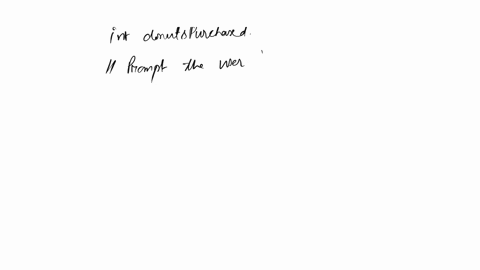 int donutsPurchased.
// Prompt the user